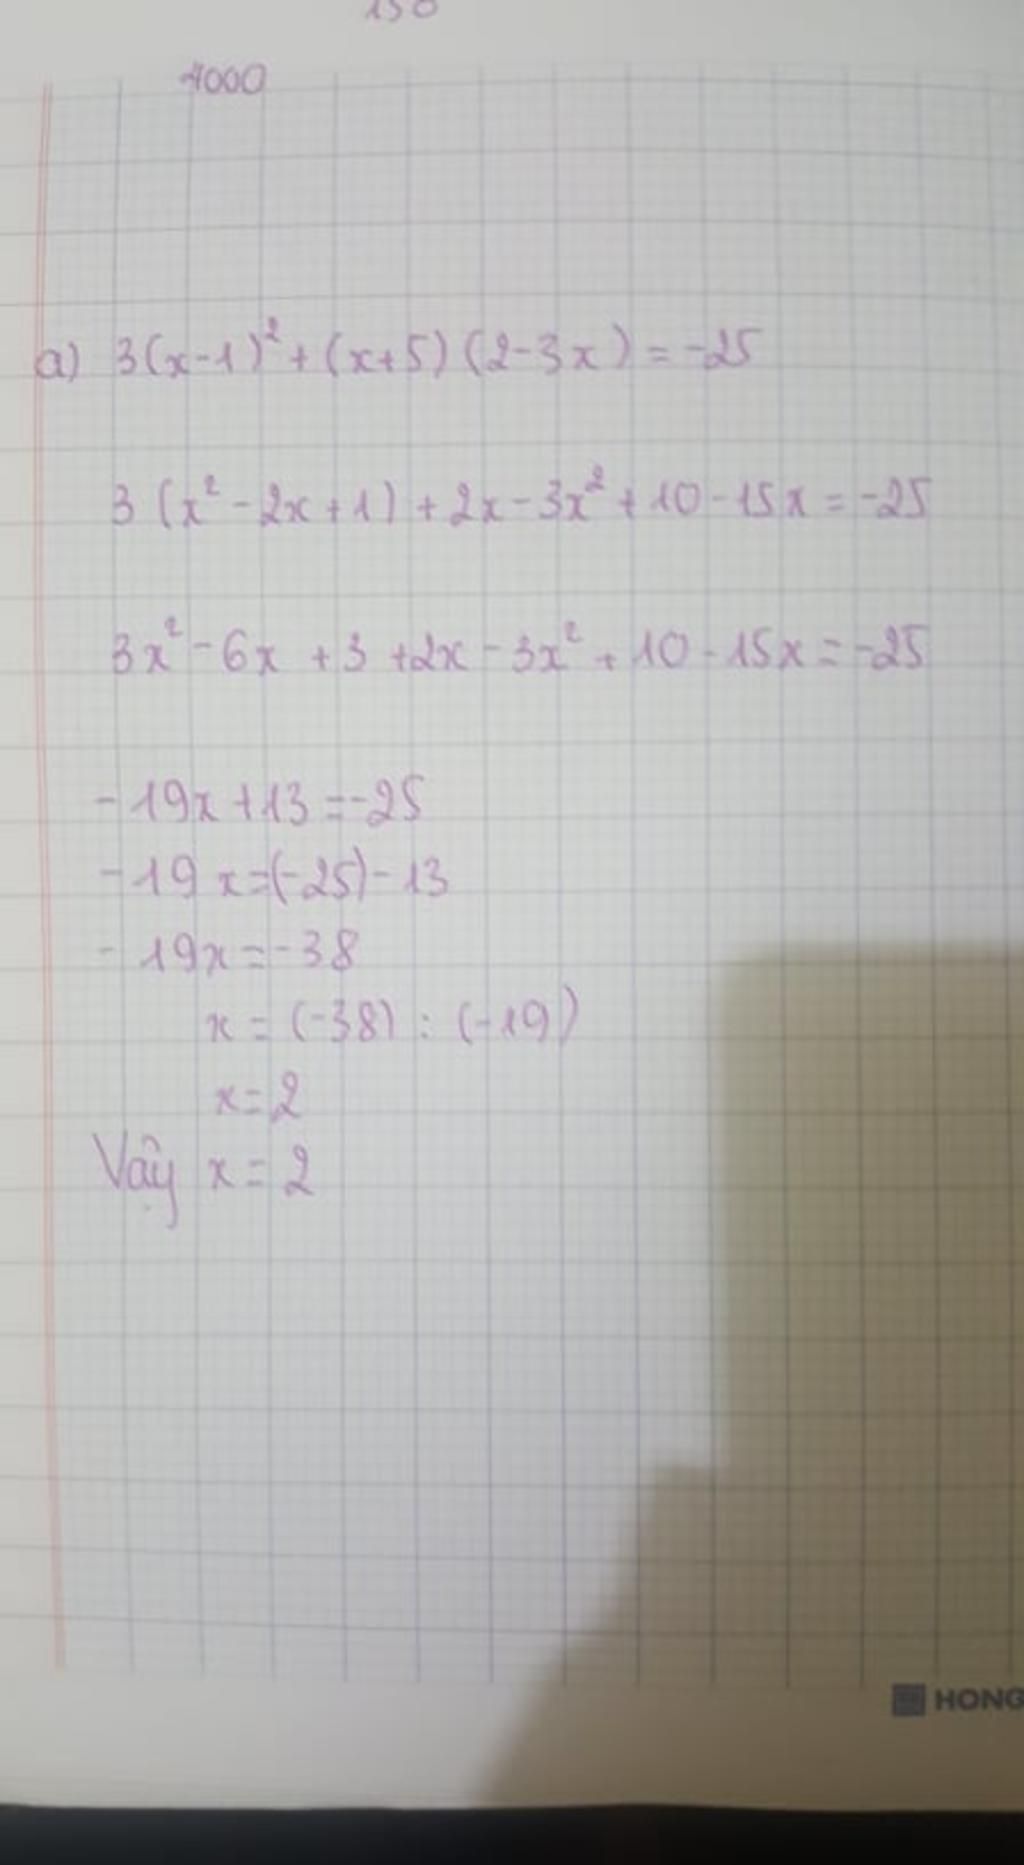 150
1000
a) 3(x-1)² + (x+5) (2-3x) = -25
3 (x² - 2x + 1) + 2x - 3x² + 10 - 15x = -25
3x² - 6x + 3 + 2x - 3x² + 10 - 15x = -25
- 19x + 13 = -25
- 19 x = (-25) - 13
- 19x = -38
x = (-38) : (-19)
x = 2
Vậy x = 2
HONG